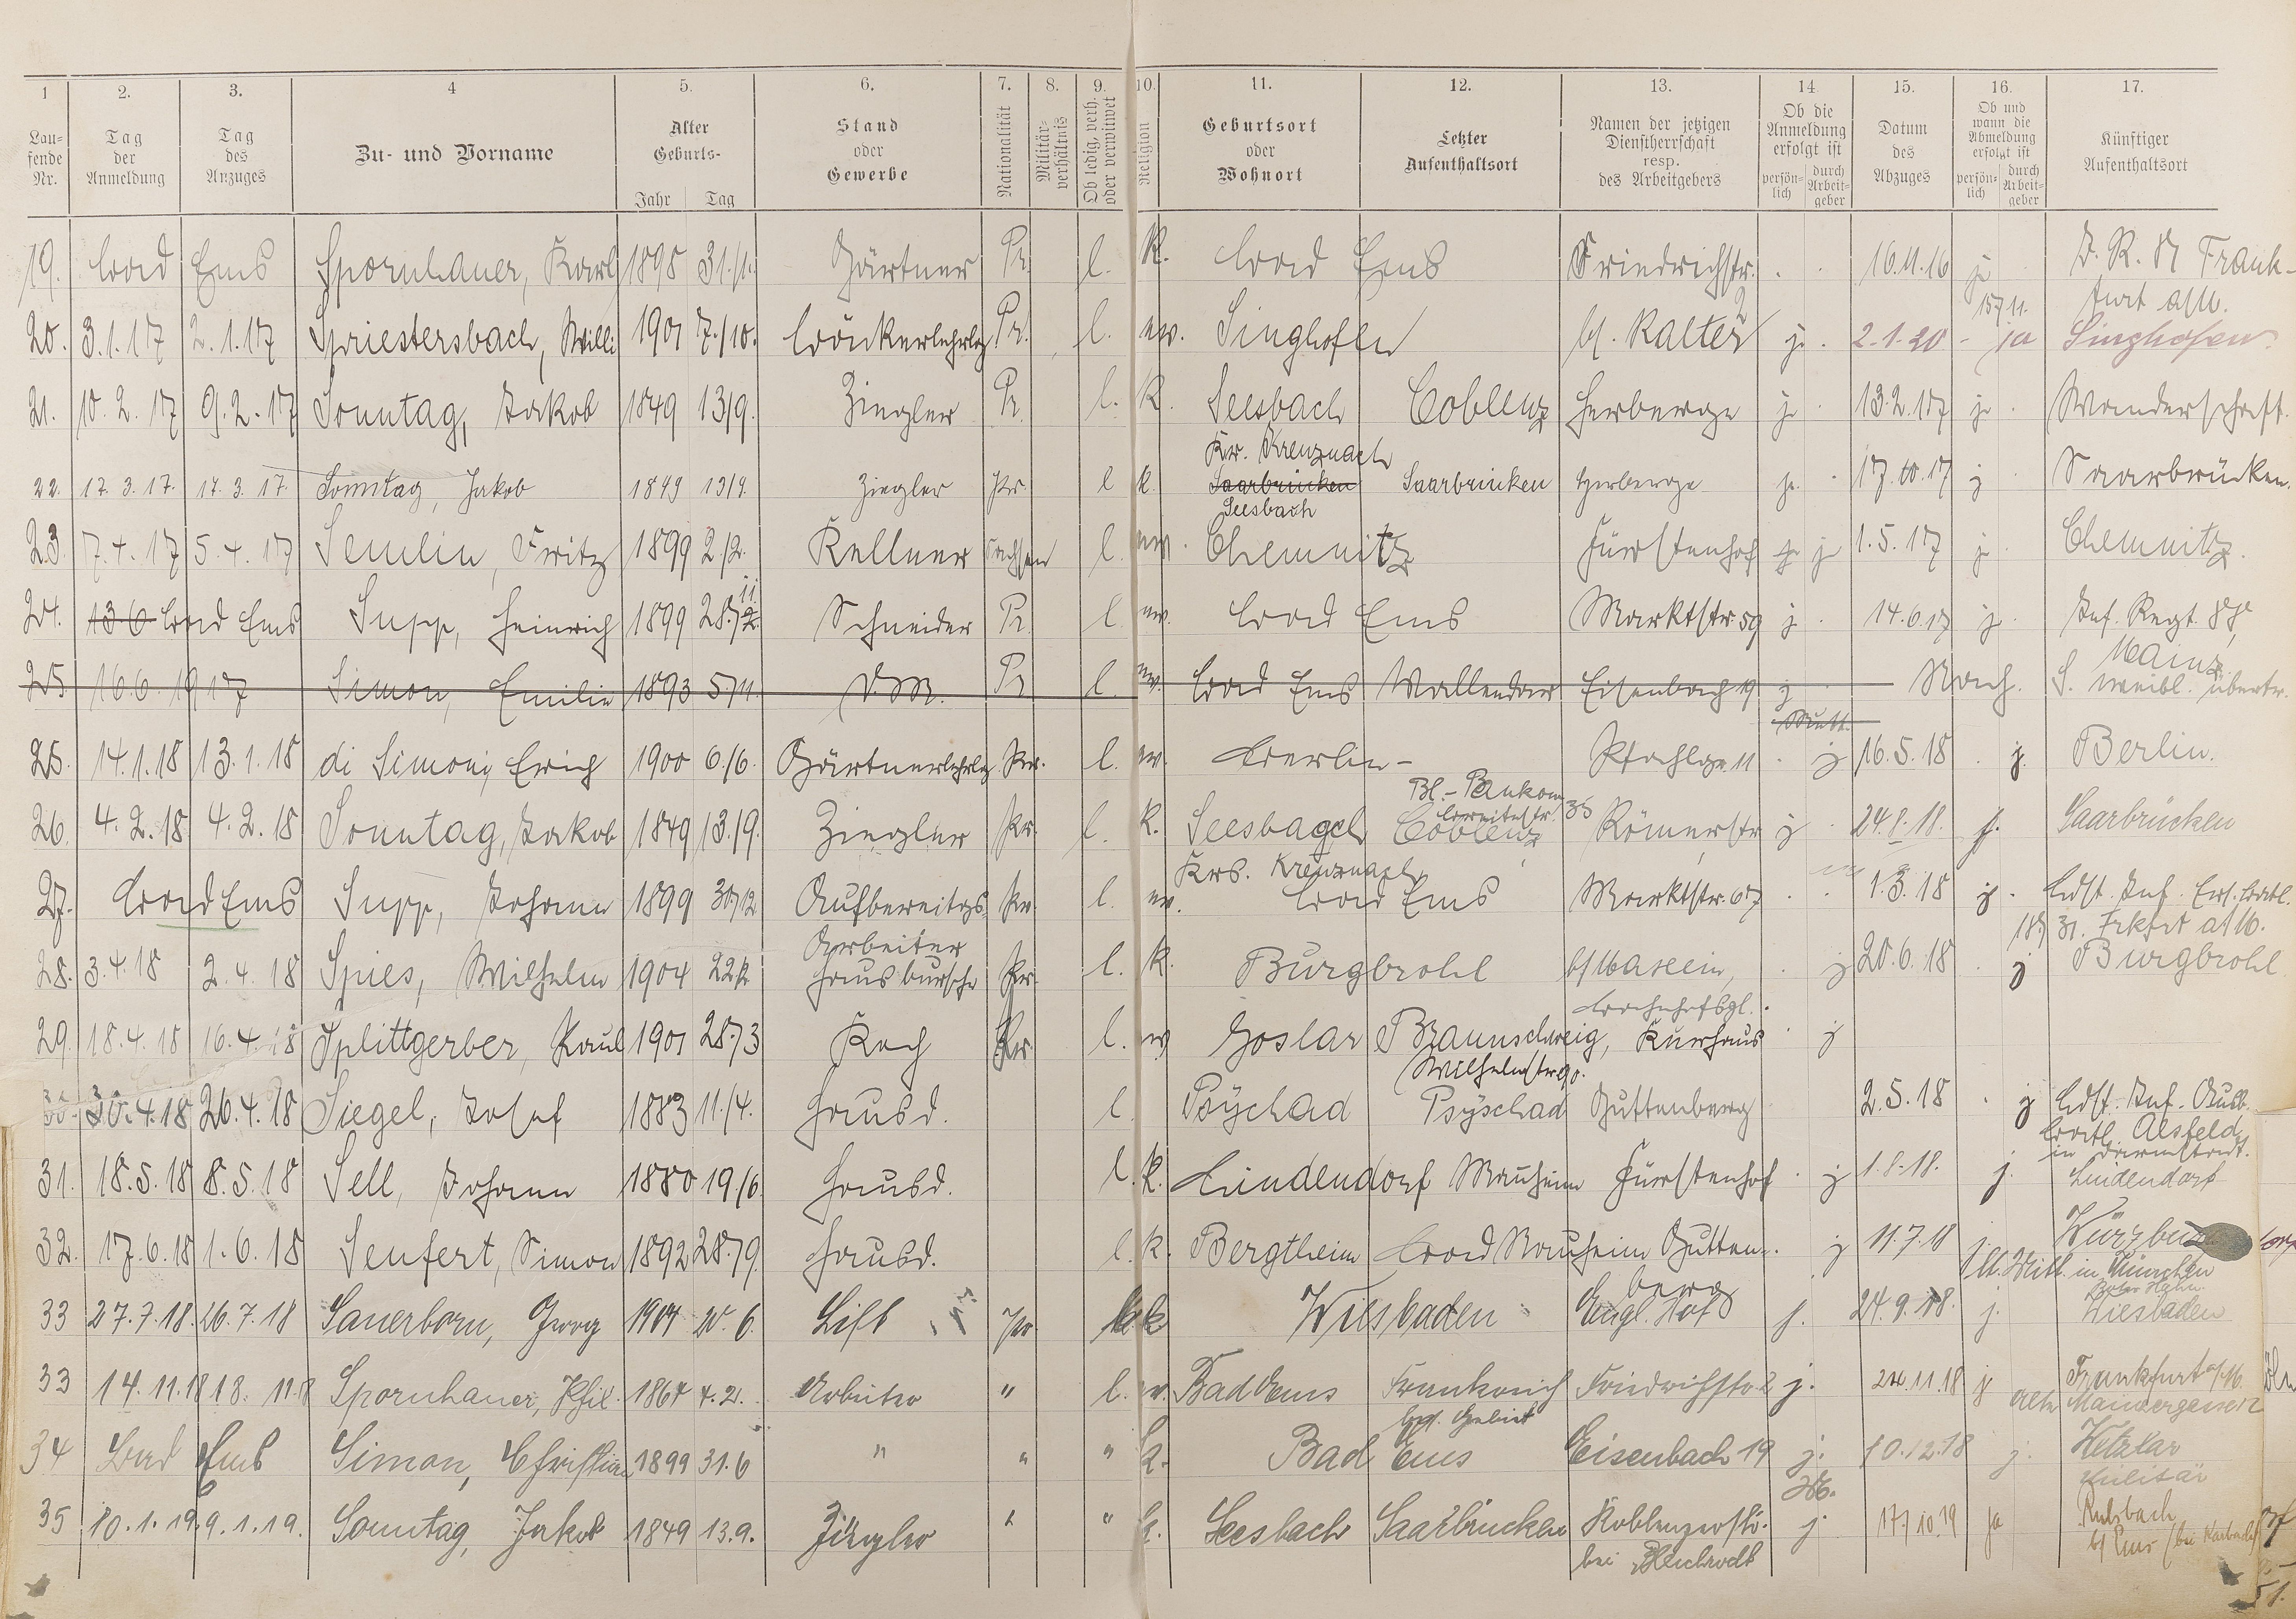 1 2. 3. 4 5. 6. 7. 8. 9. 10. 11. 12. 13. 14. 15. 16. 17.
Lau=fende Nr. Tag der Anmeldung Tag des Anzuges Zu- und Vorname Alter Geburts- Jahr Tag Stand oder Gewerbe Nationalität Militär-verhältnis Ob ledig, verh. oder verwitwet Religion Geburtsort oder Wohnort Letzter Aufenthaltsort Namen der jetzigen Dienstherrschaft resp. des Arbeitgebers Ob die Anmeldung erfolgt ist persön-lich durch Arbeit-geber Datum des Abzuges Ob und wann die Abmeldung erfolgt ist persön-lich durch Arbeit-geber Künftiger Aufenthaltsort
19. Bad Ems Spornhauer, Karl 1898 31./1. Gärtner Pr. l. K. Bad Ems Friedrichstr. 2 16.11.16 j J. R. 81 Frank-
furt a/M.
20. 3.1.17 2.1.17 Spriestersbach, Willi 1901 7./10. Bäckerlehrlg Pr. l. ev. Singhofen b/. Kalter j. 2.1.20 - ja Singhofen
21. 10.2.17 9.2.17 Sonntag, Jakob 1849 13/9. Ziegler Pr. l. K. Seesbach Coblenz Herberge j. 13.2.17 j. Wanderschaft.
Kr. Kreuznach
22. 17.3.17. 17.3.17. Sonntag, Jakob 1849 13/9. Ziegler Pr. l K. Saarbrücken Saarbrücken Herberge ja. 17.10.17 j Saarbrücken.
Seesbach
23. 7.4.17 5.4.17 Semlin, Fritz 1899 2/2. Kellner Sachsen l. ev. Chemnitz Fürstenhof j j 1.5.17 j. Chemnitz.
24. 13 6 Bad Ems Supp, Heinrich 1899 28./2. 11 Schneider Pr. l. ev. Bad Ems Marktstr. 59 j. 14.6.17 j. Inf. Regt. 87,
Mainz
25. 16.6.1917 Simon, Emilie 1893 5/11. D.M. Pr l. ev. Bad Ems Vallendar Eisenbach 19 j. Nach. S. weibl. übertr.
Mutt.
25. 14.1.18 13.1.18 di Simoni, Erich 1900 6./6. Gärtnerlehrlg Pr. l. ev. Berlin - Pfahlgr. 11 j 16.5.18 j. Berlin.
Bl.-Pankow
Breitestr. 35
26. 4.2.18 4.2.18 Sonntag, Jakob 1849 13./9. Ziegler Pr. l. K. Seesbach Coblenz Römerstr j 24.8.18. j. Saarbrücken
Krs. Kreuznach
27. Bad Ems Supp, Johann 1899 31/12 Aufbereitgs. Pr. l. ev. Bad Ems Marktstr. 67 1.3.18 j. Ldst. Inf. Ers. Batl.
Arbeiter 18/31. Frkfrt a/M.
28. 3.4.18 2.4.18 Spies, Wilhelm 1904 22/2 Hausbursche Pr. l. K. Burgbrohl j 20.6.18 j Burgbrohl
Bahnhofspl.
29. 18.4.18 16.4.18 Splittgerber, Paul 1901 28./3 Koch Pr l. ev Goslar Braunschweig, Kurhaus j
Wilhelmstr 90.
30. 30.4.18 26.4.18 Siegel, Josef 1883 11./4. Hausd. l. Guttenberg 2.5.18 j Ldst. Inf. Ausb.
Batl. Alsfeld
in Darmstadt.
31. 18.5.18 8.5.18 Sell, Johann 1880 19/6. Hausd. l. K. Lindendorf Manheim Fürstenhof j 1.8.18. j. Lindendorf
32. 17.6.18 1.6.18 Senfert, Simon 1892 28./9. Hausd. l. K. Bergtheim Bad Nauheim Gutten- j 11.7.18 j. Würzburg
berg in München
33 27.7.18. 26.7.18 Sauerborn, Georg 1904 20.6. Lift Pr k Wiesbaden Engl. Hof j. 24.9.18. j. Wiesbaden
33 14.11.18 13.11.8 Spornhauer, Phil. 1864 4.2. Arbeiter " l. ev. Bad Ems Frankreich Friedrichstr. 2 j. 24.11.18 j Frankfurt a/M.
bes. Gebiet Alte Mainzergasse 12
34 Bad Ems Simon, Christian 1899 31.6 " " " K. Bad Ems Eisenbach 19 j. 10.12.18 j. Wetzlar
Militär
35 10.1.19. 9.1.19. Sonntag, Jakob 1849 13.9. Ziegler " " K. Seesbach Saarbrücken Koblenzerstr. j. 17.10.19 ja
bei b/ Ems (bei Karbach)